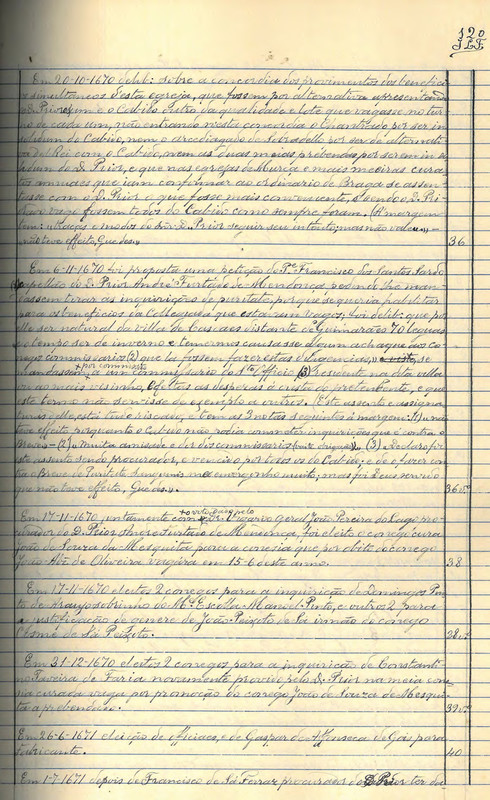 120
Em 20-10-1670 delib: sobre a concordia dos provimentos dos benefi
simultaneos desta egreja, que fossem por alternativa apresentando
o D. Prior em e o Cabido outro da qualidade e lote que vagasse no tur
no de cada um, não entrando nesta concordia o Chantrado por ser in
solidum do Cabido, nem o arcediagado de Sobradello por ser de alternati
va del Rei com o Cabido, nem as duas meias prebendas por serem in so
lidum do D. Prior, e que nas egrejas de Murça e mais moeiras cura
tos annuaes que iam confirmar ao ordinario de Braga se assen
tasse com o D. Prior o que fosse mais conveniente,
fossem todos do Cabido como sempre foram. (Á margem
tem: traças e modos do Snr. D. Prior seguir seu intento, mas não valeu
não teve effeito, Guedes.
36
Em 6-11-1670 foi proposta uma petição do Pe. Francisco dos Santos
capellão do D. Prior André Furtado de Mendonça pedindo lhe man
dassem tirar as inquirições de puritate porque se queria habilitar
para os beneficios da Collegiada que estavam vagos; foi delib: que por
elle ser natural da villa de Cascaes distante de Guimarães 70 leguas
e o tempo ser de inverno e temermos causasse algum achaque aos co
negos commissarios (2) que lá fossem fazer estas diligencias, se
mandassem por commissão a um commissario do Sto. Officio (3) residente na dita villa
ou ao mais visinho, e feitas as despesas á custa do pretendente, e que
este termo não servisse de exemplo a outros. (Este assento é assigna
elle, está todo riscado, e tem as 3 notas seguintes á margem: (1) não
teve effeito porquanto o Cabido não podia commetter inquirições que é contra o
(2) Muita amisade e dez dos commissarios (3) e Declaro fiz
este assento sendo procurador, e venceu o por todos os do Cabido; e de o fazer con
tra o Breve de Puritate Sanguinis me envergonho muito; mas foi Deus servido
que não teve effeito, Guedes.
36 vº
Em 17-11-1670, juntamente com o voto dado pelo Dr. Vigario Geral João Pereira do Lago pro
curador do D. Prior André Furtado de Mendonça, foi eleito o conego cura
João de Souza da Mesquita para a conesia que por obito do conego
João Alz. de Oliveira vagára em 15-6 este anno.
38
Em 17-11-1670 eleitos 2 conegos para a inquirição de Domingos Pin
to de Araujo sobrinho do Me. Escola Manuel Pinto, e outros 2 para
a justificação de genere de João Peixoto de Sá irmão do conego
Cosme de Sá Peixoto.
38 vº
Em 31-12-1670 eleitos 2 conegos para a inquirição de Constanti
no Pereira de Faria novamente provido pelo D. Prior na meia cone
sia curada vaga por promoção do conego João de Souza de Mesqui
ta a prebendado.
39 vº
Em 26-6-1671 eleição de officiaes, e de Gaspar da Affonseca de Goes para
fabricante.
40
Em 1-7-1671 depois de Francisco de Sá Ferraz procurador do D. Prior ter da